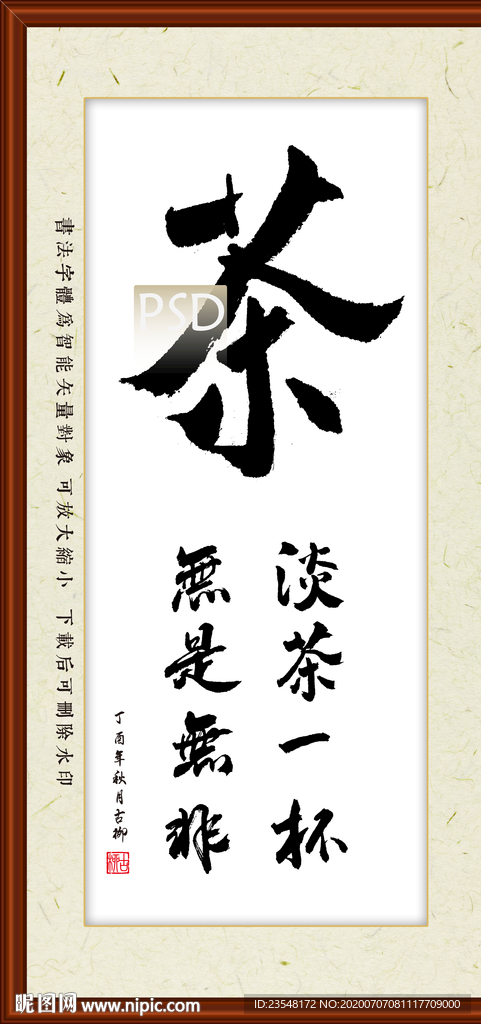 茶
淡茶一杯
無是無非
丁酉年秋月古柳
古柳
書法字體為智能矢量對象 可放大縮小 下載后可刪除水印
PSD
昵图网 www.nipic.com
ID:23548172 NO:20200707081117709000